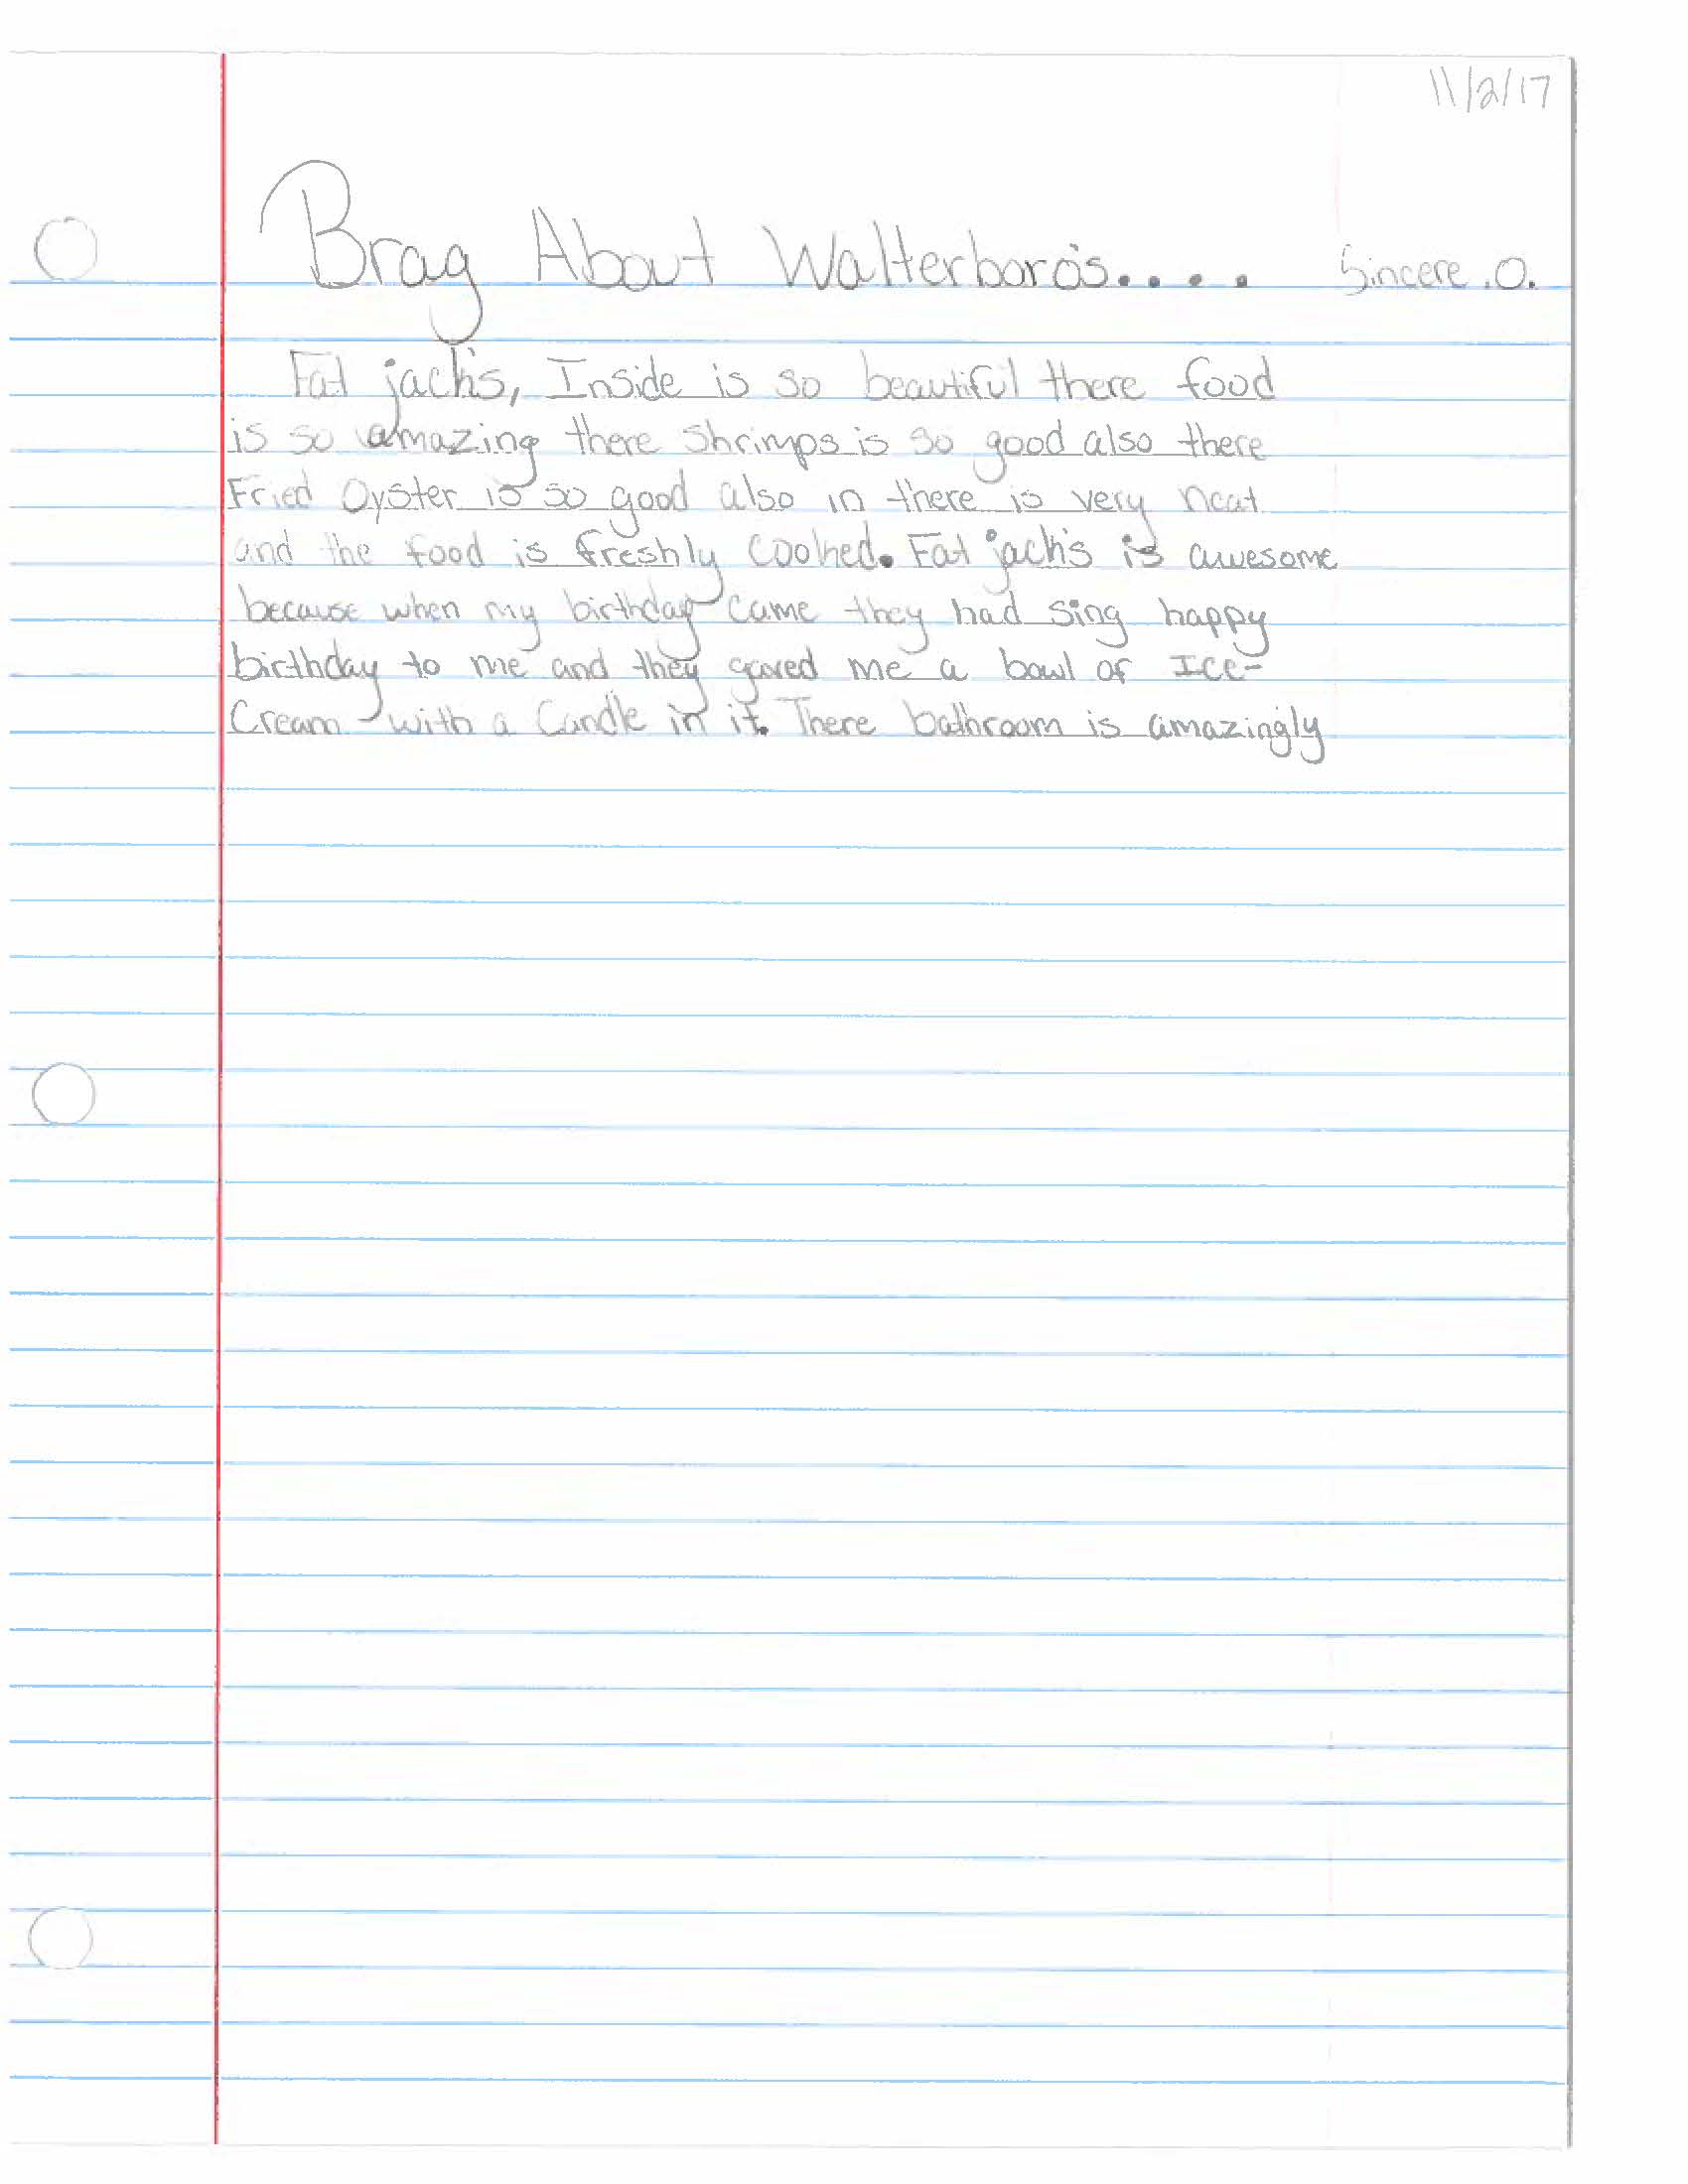 11/2/17
Brag About Walterboro's.... Sincere .O.
Fat jack's, Inside is so beautiful there food
is so amazing there Shrimps is so good also there
Fried Oyster is so good also in there is very neat
and the food is freshly cooked. Fat jack's is awesome
because when my birthday came they had sing happy
birthday to me and they gaved me a bowl of Ice-
Cream with a Candle in it. There bathroom is amazingly